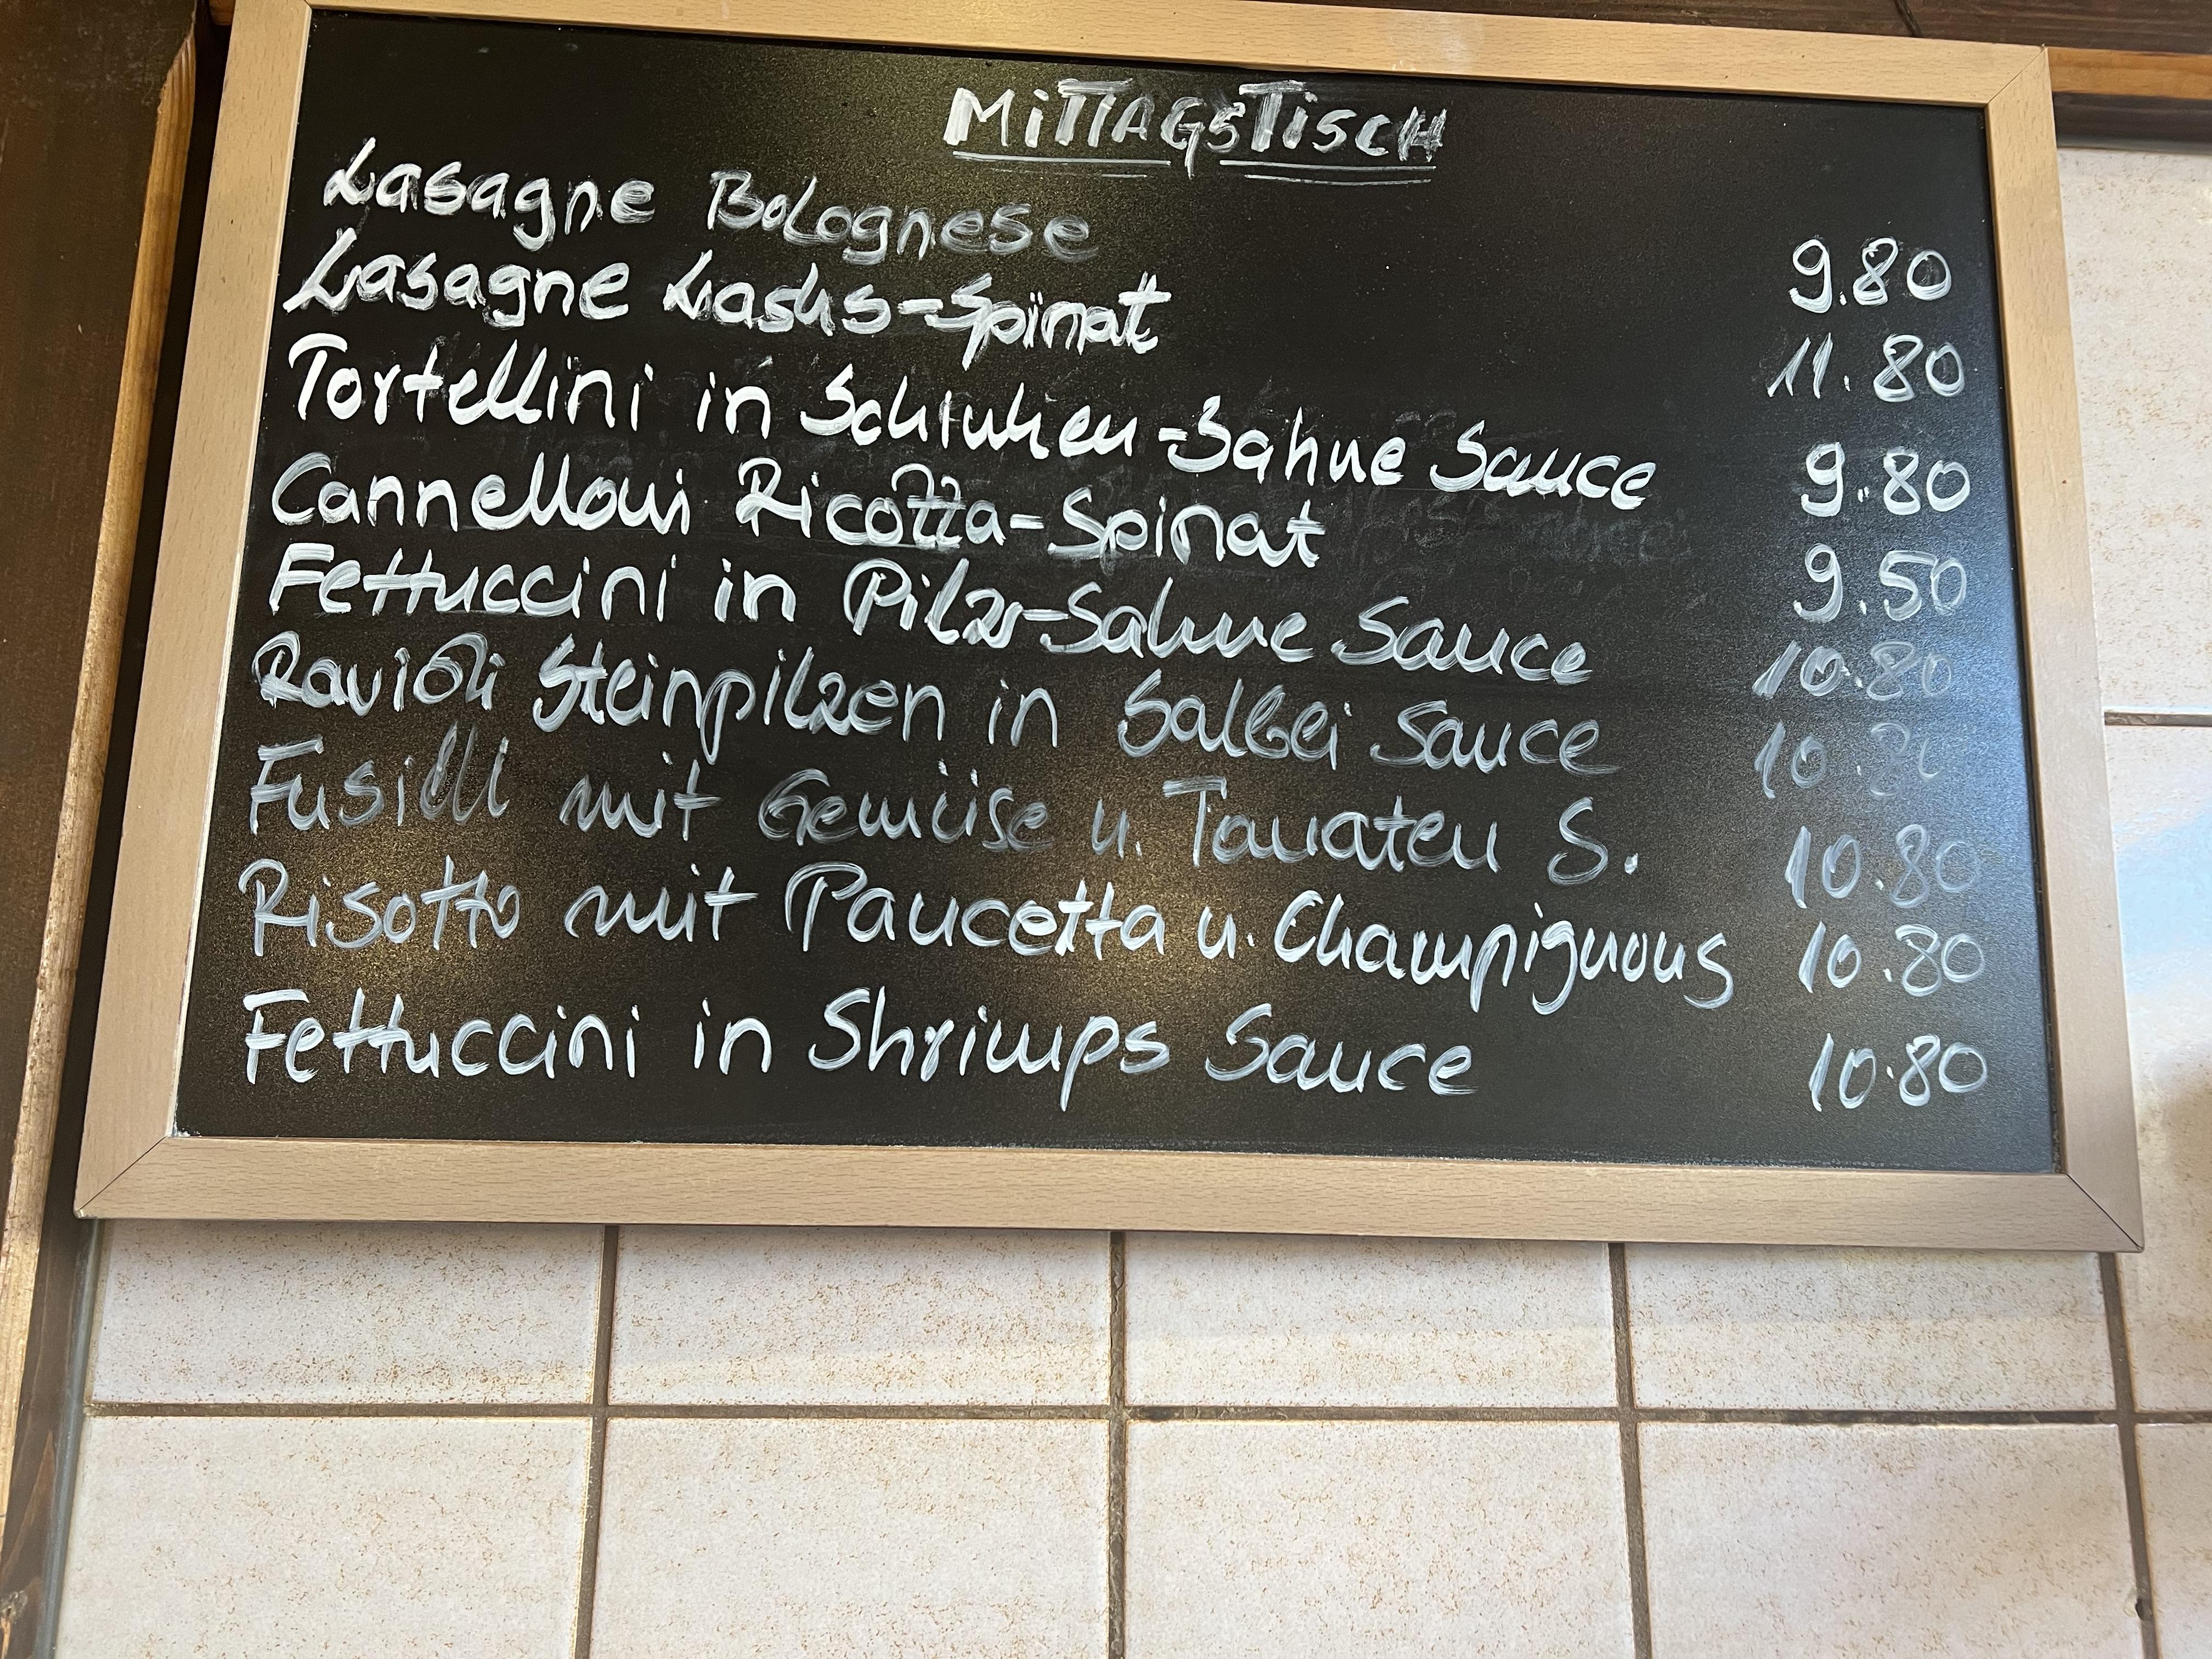 MITTAGSTISCH
Lasagne Bolognese 9.80
Lasagne Lachs-Spinat 11.80
Tortellini in Schinken-Sahne Sauce 9.80
Cannelloni Ricotta-Spinat 9.50
Fettuccini in Pilz-Sahne Sauce 10.80
Ravioli Steinpilzen in Salbei Sauce
Fusilli mit Gemüse u. Tomaten S. 10.80
Risotto mit Pancetta u. Champignons 10.80
Fettuccini in Shrimps Sauce 10.80